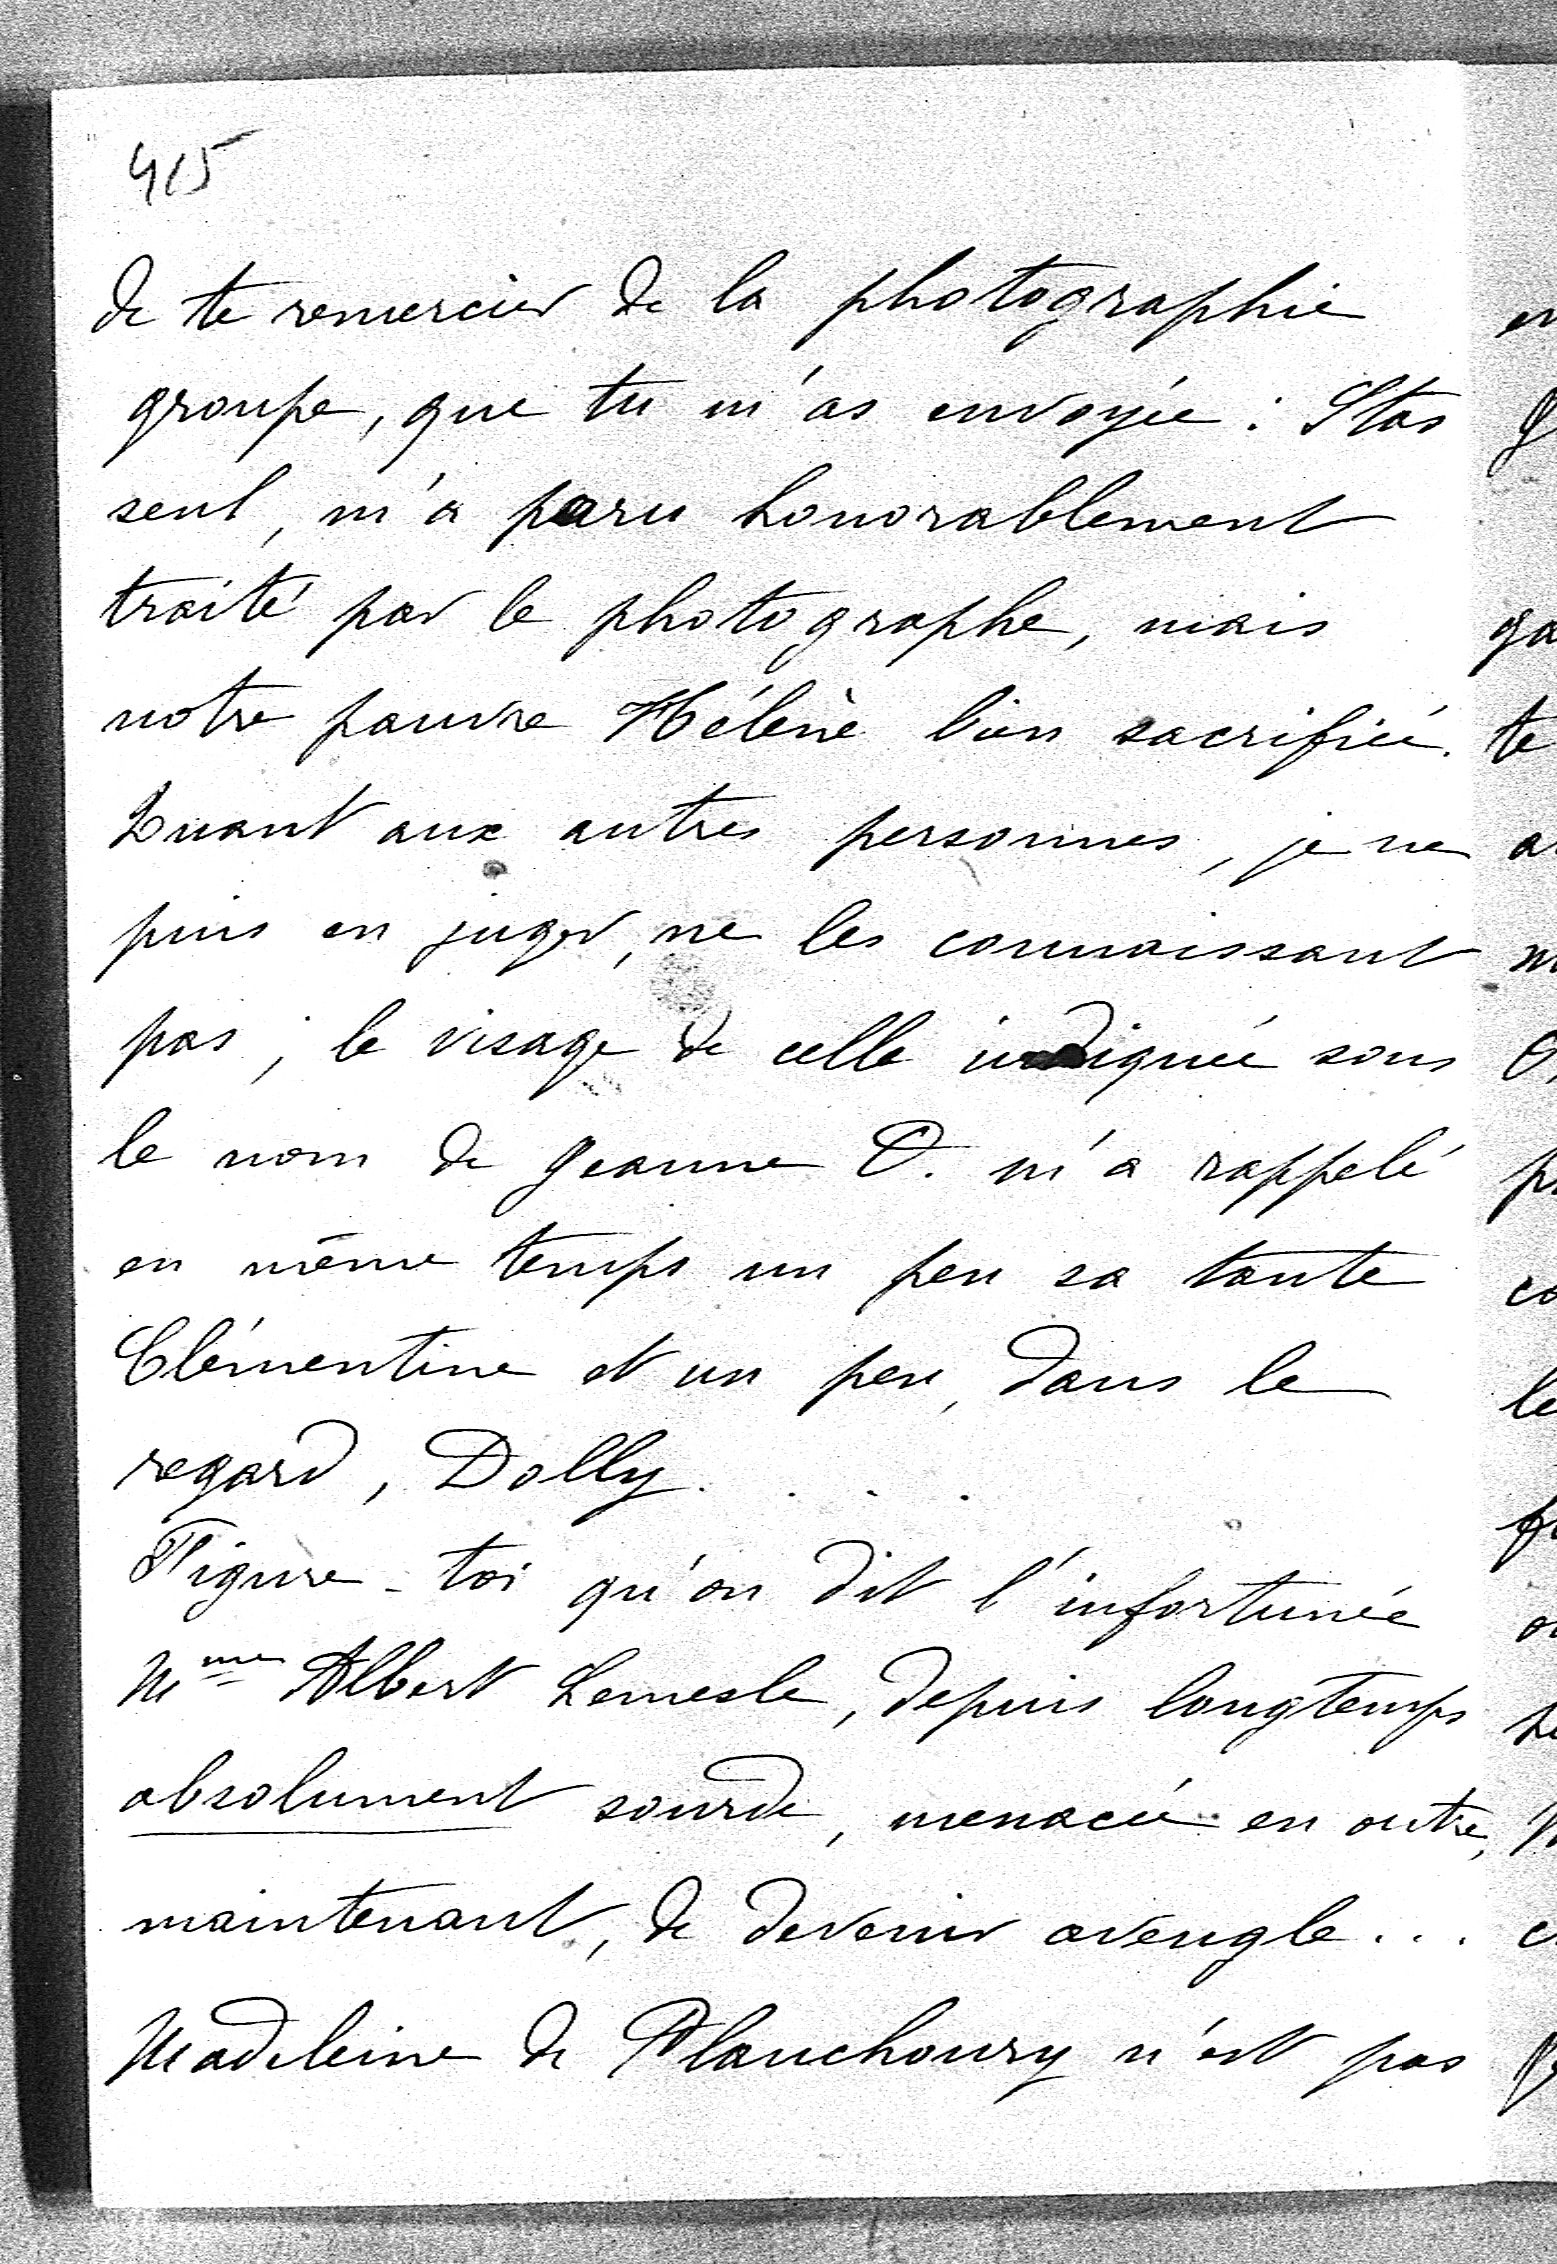 415
de te remercier de la photographie
groupe, que tu m'as envoyée : Stas
seul, m'a paru honorablement
traité par le photographe, mais
notre pauvre Hélène bien sacrifiée.
Quant aux autres personnes, je ne
puis en juger, ne les connaissant
pas ; le visage de celle indiquée sous
le nom de Jeanne O. m'a rappelé
en même temps un peu sa tante
Clémentine et un peu, dans le
regard, Dolly. . . .
Figure-toi qu'on dit l'infortunée
Mme Albert Lemesle, depuis longtemps
absolument sourde, menacée en outre,
maintenant, de devenir aveugle...
Madeleine de Planchoury n'est pas